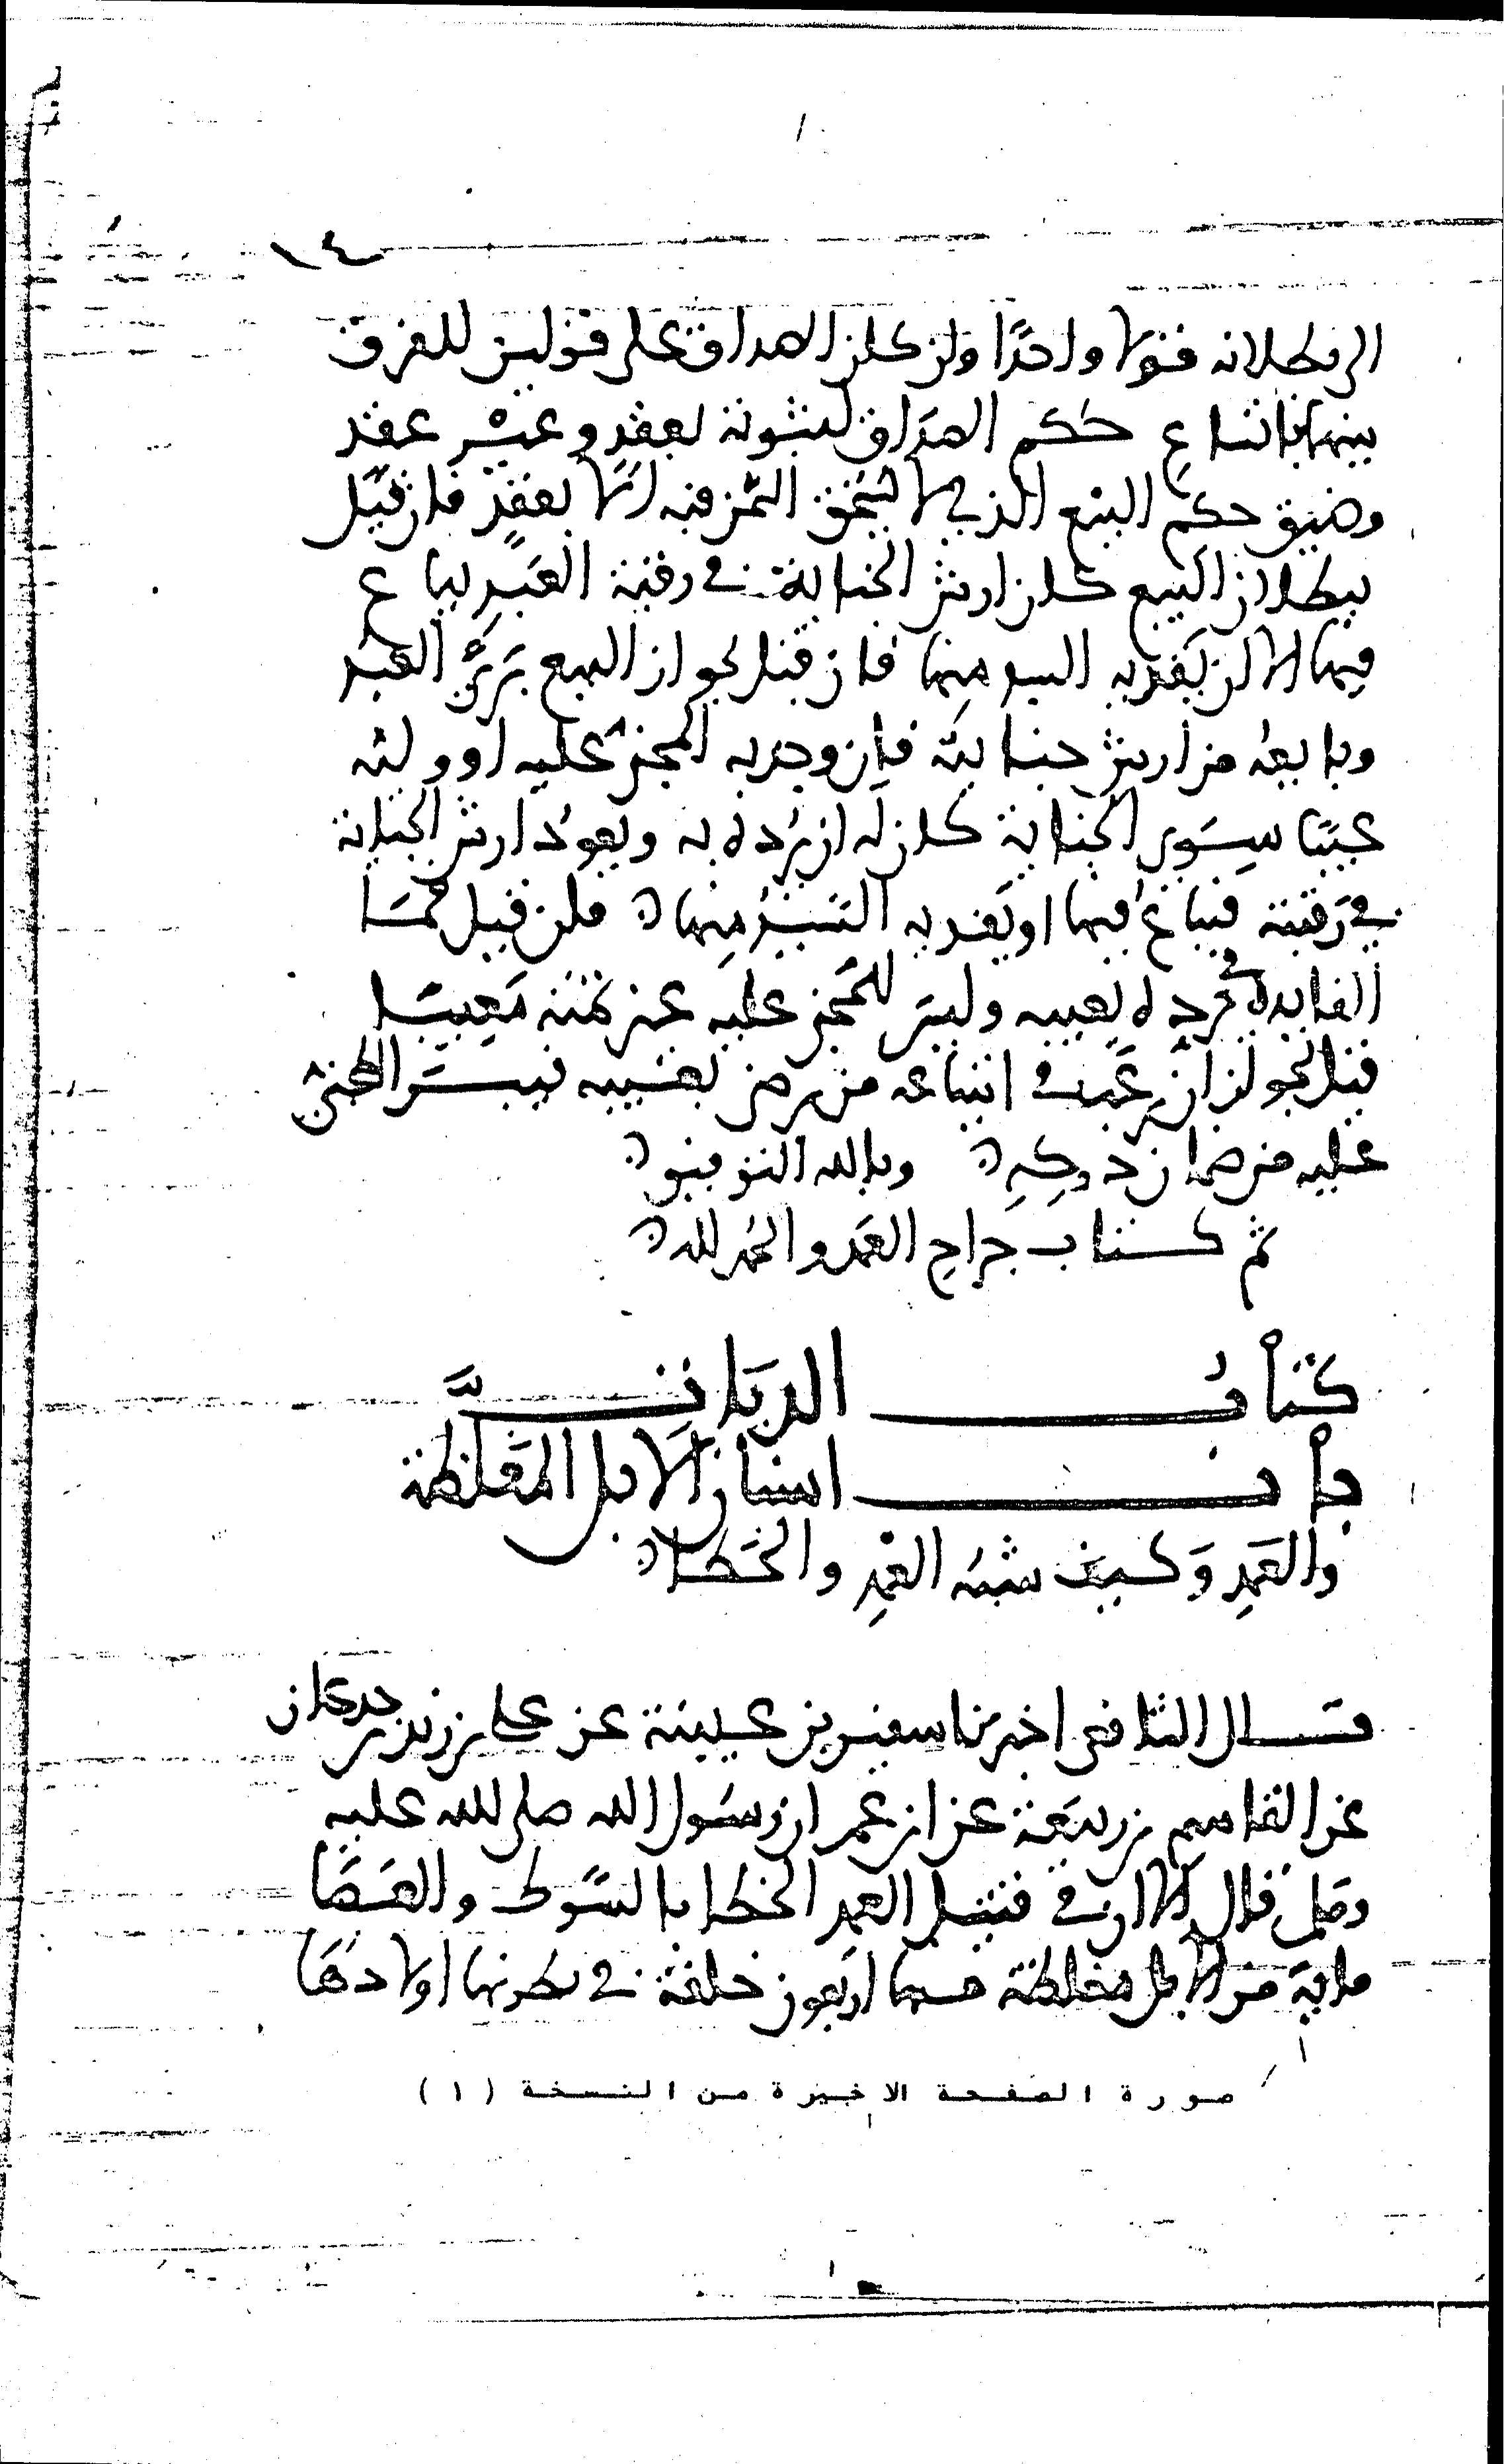 ١٤
الى بطلانه قولا واحدا وان كان الصداق على قولين للفرق
بينهما باتساع حكم الصداق لثبوته بعقد وغير عقد
وضيق حكم البيع الذي لا يستحق الثمن فيه الا بعقد فان قيل
ببطلان البيع كان ارش الجناية في رقبة العبد يباع
فيها الا ان يفديه السيد منها فان قيل بجواز البيع برئ العبد
وبايعه من ارش جنايته فان وجد به المجني عليه او وليه
عيبا سوى الجناية كان له ان يرده به ويعود ارش الجناية
في رقبته فيباع فيها او يفديه السيد منها فان قيل فما
الفايدة في رده بعيبه وليس للمجني عليه غير ثمنه معيبا
قيل لجواز ان يرغب في ابتياعه من يرضى بعيبه فيسلم المجني
عليه من ضمان دركه وبالله التوفيق
تم كتاب جراح العمد والحمد لله
كتاب الديات
باب اسنان الابل المغلظة
والعمد وكيف شبه العمد والخطا
قال الشافعي اخبرنا سفين بن عيينة عن علي بن زيد بن جدعان
عن القاسم بن ربيعة عن ابن عمر ان رسول الله صلى الله عليه
وسلم قال الا ان في قتيل العمد الخطا بالسوط والعصا
ماية من الابل مغلظة منها اربعون خلفة في بطونها اولادها
صورة الصفحة الاخيرة من النسخة (١)